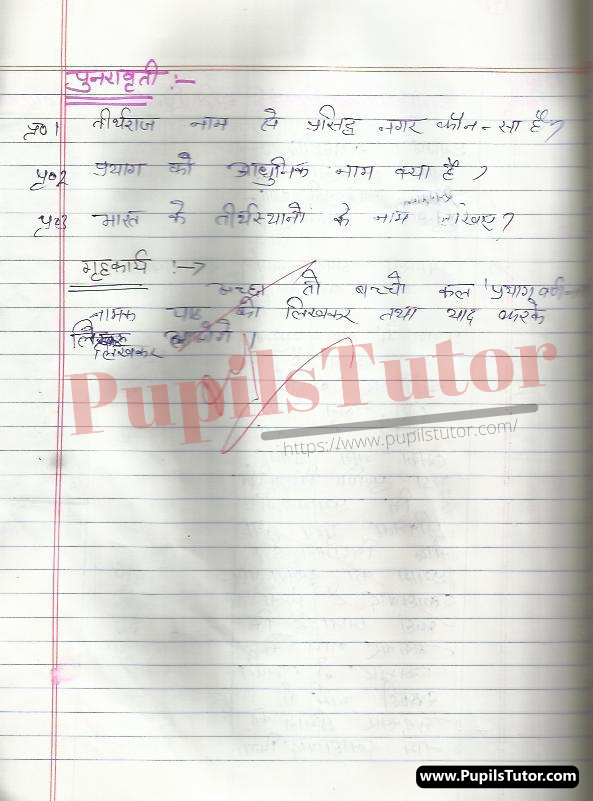 पुनरावृती :-
प्र०1 तीर्थराज नाम से प्रसिद्ध नगर कौन-सा है?
प्र०2 प्रयाग को आधुनिक नाम क्या है?
प्र०3 भारत के तीर्थस्थानों के नाम लिखिए?
गृहकार्य :->
अच्छा तो बच्चो कल 'प्रयाग
नामक पाठ को लिखकर तथा याद करके
लिखकर आयेगे।
लिखकर
PupilsTutor
https://www.pupilstutor.com/
www.PupilsTutor.com